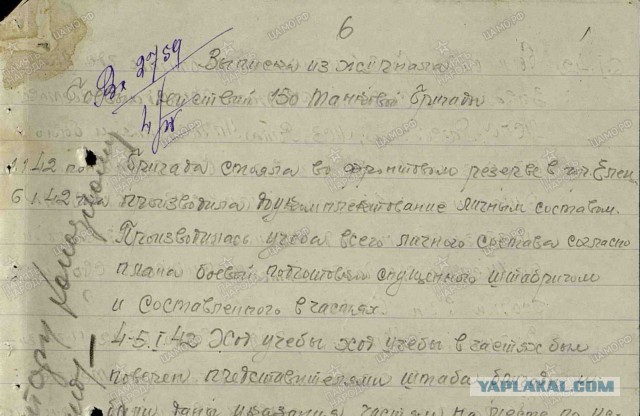 6
Вх 2759
Выписка из журнала
Боевых действий 150 танковой бригады
1.1.42 по Бригада стояла во фронтовом резерве в гор. Елец
6.1.42 производила доукомплектование личным составом.
Производилась учеба всего личного состава согласно
плана боевой подготовки спущенного штабригом
и составленного в частях.
4-5.I.42 Ход учебы ход учебы в частях был
поверен представителями штаба
были даны указания частям на
YAPLAKAL.COM